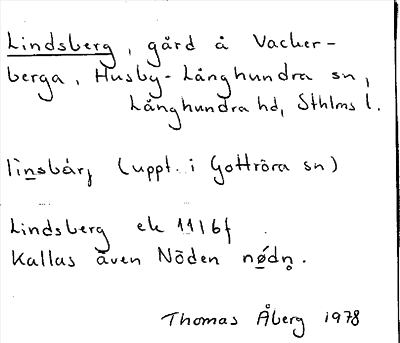 Lindsberg, gård å Vacker-
berga, Husby-Långhundra sn,
Långhundra hd, Sthlms l.
lìnsbárj (uppt. i Gottröra sn)
Lindsberg ek 11I6f
Kallas även Nöden nǿdn̥.
Thomas Åberg 1978